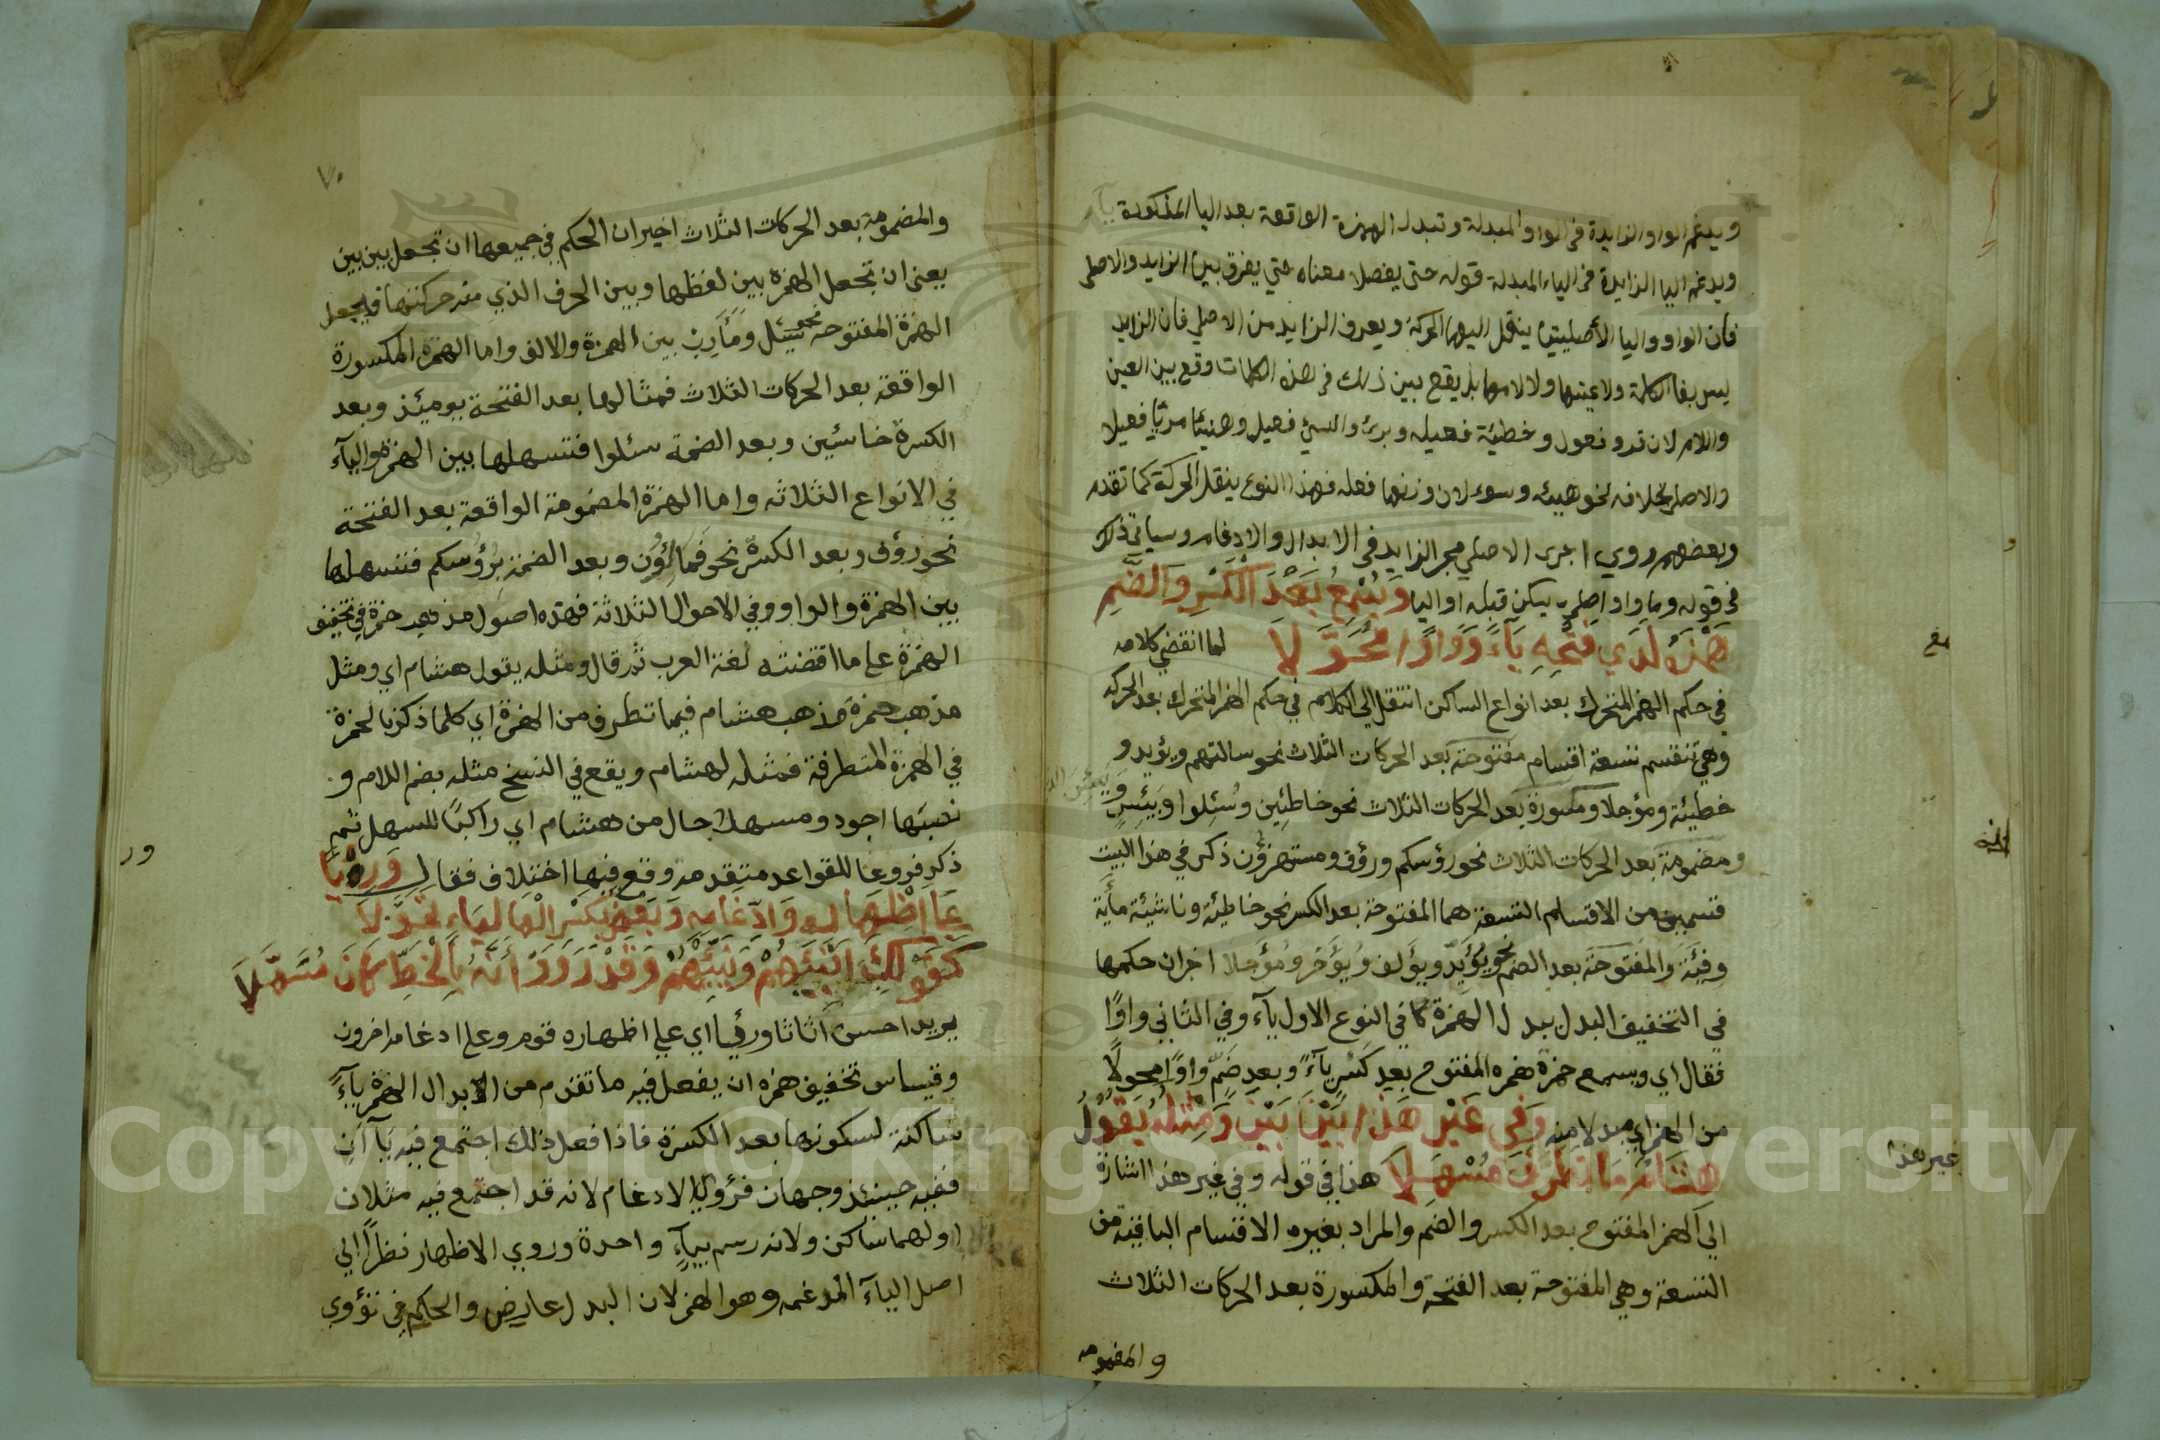 ويدغم الواو الزايدة في الواو المبدلة وتبدل الهمزة الواقعة بعد اليا المذكورة ياء
ويدغم اليا الزايدة في الياء المبدلة قوله حتى يفصلا معناه حتي يفرق بين الزايد والاصلى
فان الواو واليا الأصليين ينقل اليهما الحركة ويعرف الزايد من الاصلي فان الزايد
ليس بفا الكلمة ولا عينها ولا لامها بل يقع بين ذلك في هذه الكلمات وقع بين العين
واللام لان قروء فعول وخطيئة فعيله وبرئ والنسئ فعيل وهنيئا مريا فعيلا
والاصلي بخلافه نحو هيئه وسوء لان وزنها فعله فهذا النوع ينقل الحركة كما تقدم
وبعضهم روي اجرى الاصلي مجر الزايد في الابدال والادغام وسياتي ذلك
في قوله وما واو اصلي تسكن قبله او اليا ويُسْمِعُ بَعْدَ الْكَسْرِ وَالضَّمِ
هَمْزَهُ لَدَي فَتْحِهِ يَآءً وَوَاوًا مُحَوَّلَا لما انقضي كلامه
في حكم الهمز المتحرك بعد انواع الساكن انتقل الي الكلام في حكم الهمز المتحرك بعد الحركه
وهي تنقسم تسعة اقسام مفتوحة بعد الحركات الثلاث نحو سالتهم ويؤيد و
خطيئة ومؤجلا ومكسورة بعد الحركات الثلاث نحو خاطئين وسُئِلوا وبَئِسٍ
ومضمومة بعد الحركات الثلاث نحو رؤسكم ورؤف ومستهزؤن ذكر في هذا البيت
قسمين من الاقسام التسعة هما المفتوحة بعد الكسر نحو خاطيئة وناشيئة مأية
وفئة والمفتوحة بعد الضم نحو يُؤَيِّد ويؤَلف ويُؤَخر ومُؤَجلا اخران حكمها
في التخفيف البدل يبدل الهمزة كما في النوع الاول يآء وفي الثاني واوًا
فقال اي ويسمع حمزة همزه المفتوح بعد كَسْرٍ يآءً وبعد ضَمٍّ واوًا محولًا
من الهمز اي مبدلا منه وَفِي غَيْرِ هَذَا بَيْنَ بَيْنَ وَمِثْلُهُ يَقُوْلُ
هِشَامٌ مَا تَطَرَّفَ مُسْهِلَا هذا في قوله وفي غير هذا اشارة
الي الهمز المفتوح بعد الكسر والضم والمراد بغيره الاقسام الباقية من
التسعة وهي المفتوحة بعد الفتحة والمكسورة بعد الحركات الثلاث
والمضمومه
غير هذا
٧٠
والمضمومة بعد الحركات الثلاث اخبر ان الحكم في جميعها ان تجعل بين بين
يعنى ان تجعل الهمزة بين لفظها وبين الحرف الذي منه حركتها فيجعل
الهمزة المفتوحة نحو سَئَل ومَئَارِب بين الهمزة والالف واما الهمزة المكسورة
الواقعة بعد الحركات الثلاث فمثالها بعد الفتحة يوميئذ وبعد
الكسرة خاسئين وبعد الضمة سئلوا فتسهلها بين الهمزة واليآء
في الانواع الثلاثه واما الهمزة المضمومة الواقعة بعد الفتحة
نحو رؤف وبعد الكسرة نحو فمالِؤُن وبعد الضمة برُؤُسكم فتسهلها
بين الهمزة والواو وفي الاحوال الثلاثة فهذه اصول مذهب حمزة في تخفيف
الهمزة علي ما اقتضته لغة العرب ثم قال ومثله يقول هشام اي ومثل
مذهب حمزة مذهب هشام فيما تطرف من الهمزة اي كلما ذكرنا لحمزة
في الهمزة المتطرفة فمثله لهشام ويقع في النسخ مثله بضم اللام و
نصبها اجود ومسهلا حال من هشام اي راكبا للسهل ثم
ذكر فروعا للقواعد متقدمة وقع فيها اختلاف فقال وَرِءْيًا
عَلَى اِظْهَارِهِ وَادِّغَامِهِ وَبَعْضٌ بِكَسْرِ الْهَا لِيَاءٍ تَحَوَّلَا
كَقَوْلِكَ اَنْبِئْهُمْ وَنَبِّئْهُمْ وَقَدْ رَوَوْا اَنَّهُ بِالْخَطِّ كَانَ مُسَهِّلَا
يريد احسن اثاثا ورئيا اي على اظهاره قوم وعلى ادغامه اخرون
وقياس تخفيف همزه ان يفعل فيه ما تقدم من الابدال الهمزة يآءً
ساكنة لسكونها بعد الكسرة فاذا فعل ذلك اجتمع فيه يآآن
ففيه حينئذ وجهان فرُوِيَ الادغام لانه قد اجتمع فيه مثلان
اولهما ساكن ولانه رسم بيآءٍ واحدة وروي الاظهار نظرًا الي
اصل اليآء المدغمه وهو الهمز لان البدل عارض والحكم في تؤوي
Copyright © King Saud University